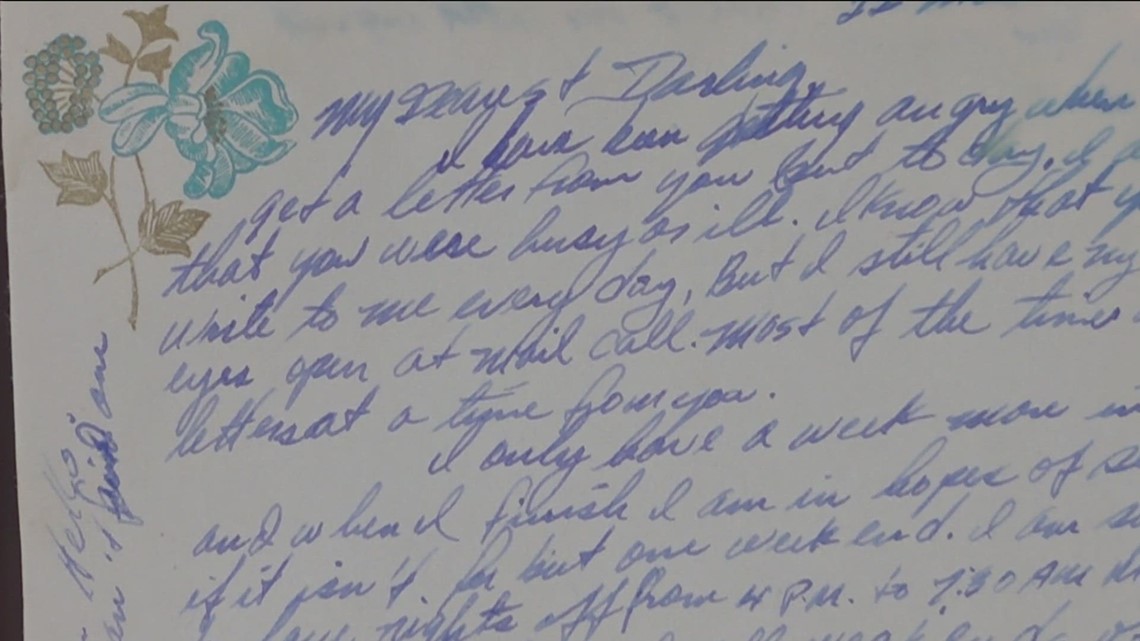 22
My Dearest Darling,
I have been getting angry when
get a letter from you but to day, I
that you were busy or ill. I know that
write to me every day, But I still have my
eyes open at mail call. Most of the times
letters at a time from you.
I only have a week more in
and when I finish I am in hopes of
if it isn't for but one week end. I am
I have nights off from 4 P.M. to 7:30 AM
week end
Hello
find one